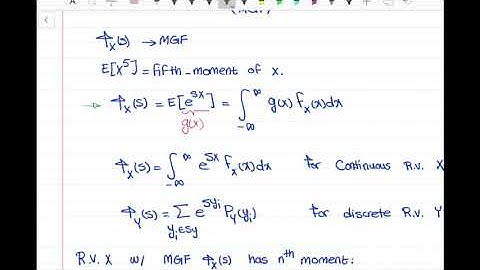 (MGF)
Φ_X(s) → MGF
E[X⁵] = Fifth-moment of X.
→ Φ_X(s) = E[e^{sX}] = ∫_{-∞}^{∞} g(x) f_X(x)dx
g(x)
Φ_X(s) = ∫_{-∞}^{∞} e^{sx} f_X(x)dx for Continuous R.V. X
Φ_Y(s) = Σ_{y_i∈S_Y} e^{sy_i} P_Y(y_i) for discrete R.V. Y
R.V. X w/ MGF Φ_X(s) has nth moment: